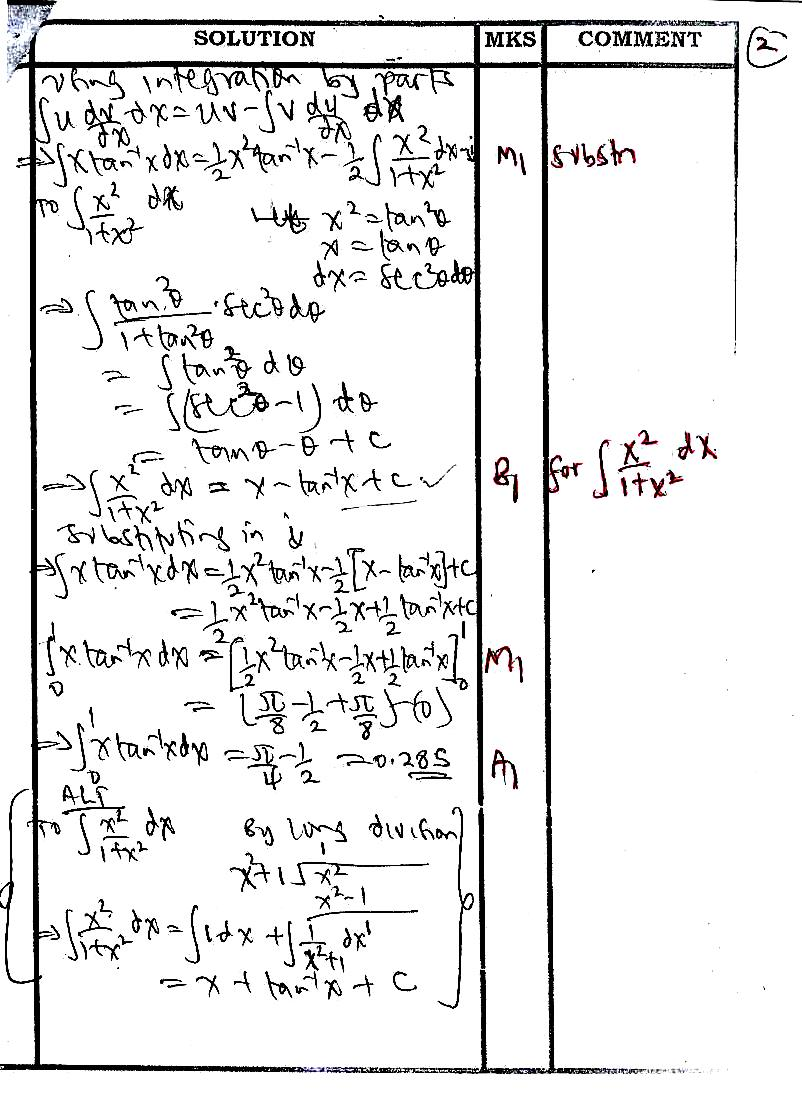 SOLUTION MKS COMMENT 2
using integration by parts
∫u dv/dx dx = uv - ∫v du/dx dx
⇒ ∫x tan⁻¹x dx = 1/2 x² tan⁻¹x - 1/2 ∫ x²/(1+x²) dx - i M1 substn
To ∫ x²/(1+x²) dx
x² = tan²θ
x = tanθ
dx = sec²θdθ
⇒ ∫ tan²θ/(1+tan²θ) · sec²θdθ
= ∫tan²θ dθ
= ∫(sec²θ-1) dθ
= tanθ-θ+c
⇒ ∫ x²/(1+x²) dx = x - tan⁻¹x + c ✓ B1 for ∫ x²/(1+x²) dx
substituting in i
⇒ ∫x tan⁻¹x dx = 1/2 x² tan⁻¹x - 1/2 [x - tan⁻¹x] + c
= 1/2 x² tan⁻¹x - 1/2 x + 1/2 tan⁻¹x + c
∫₀¹ x tan⁻¹x dx = [1/2 x² tan⁻¹x - 1/2 x + 1/2 tan⁻¹x]₀¹ M1
= [π/8 - 1/2 + π/8] - (0)
⇒ ∫₀¹ x tan⁻¹x dx = π/4 - 1/2 = 0.285 A1
ALT
To ∫ x²/(1+x²) dx By long division
1
x²+1 √ x²
x²-1
⇒ ∫ x²/(1+x²) dx = ∫1 dx + ∫ 1/(x²+1) dx
= x + tan⁻¹x + c